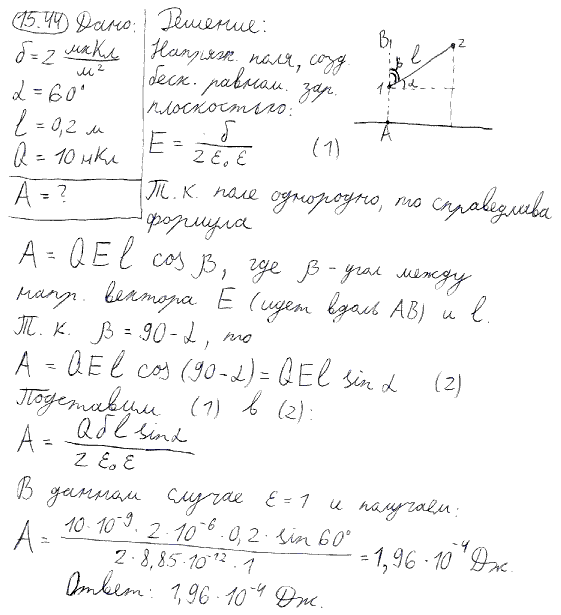 15.44 Дано: Решение:
σ = 2 мкКл/м²
α = 60°
l = 0,2 м
Q = 10 нКл
A = ?
Напряж. поля, созд.
беск. равном. зар.
плоскостью:
E = σ / 2 ε₀ ε (1)
B 2 l β 1 α A
Т. к. поле однородно, то справедлива
формула
A = QEl cos β, где β - угол между
напр. вектора E (идет вдоль AB) и l.
Т. к. β = 90 - α, то
A = QEl cos (90 - α) = QEl sin α (2)
Подставим (1) в (2):
A = Qσl sin α / 2 ε₀ ε
В данном случае ε = 1 и получаем:
A = 10·10⁻⁹ · 2·10⁻⁶ · 0,2 · sin 60° / 2 · 8,85·10⁻¹² · 1 = 1,96 · 10⁻⁴ Дж.
Ответ: 1,96 · 10⁻⁴ Дж.